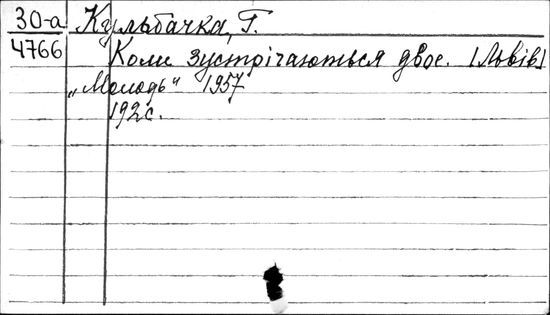 30-а Кульбачка, Г.
4766 Коли зустрічаються двоє. [Львів]
„Молодь“ 1957
192 с.